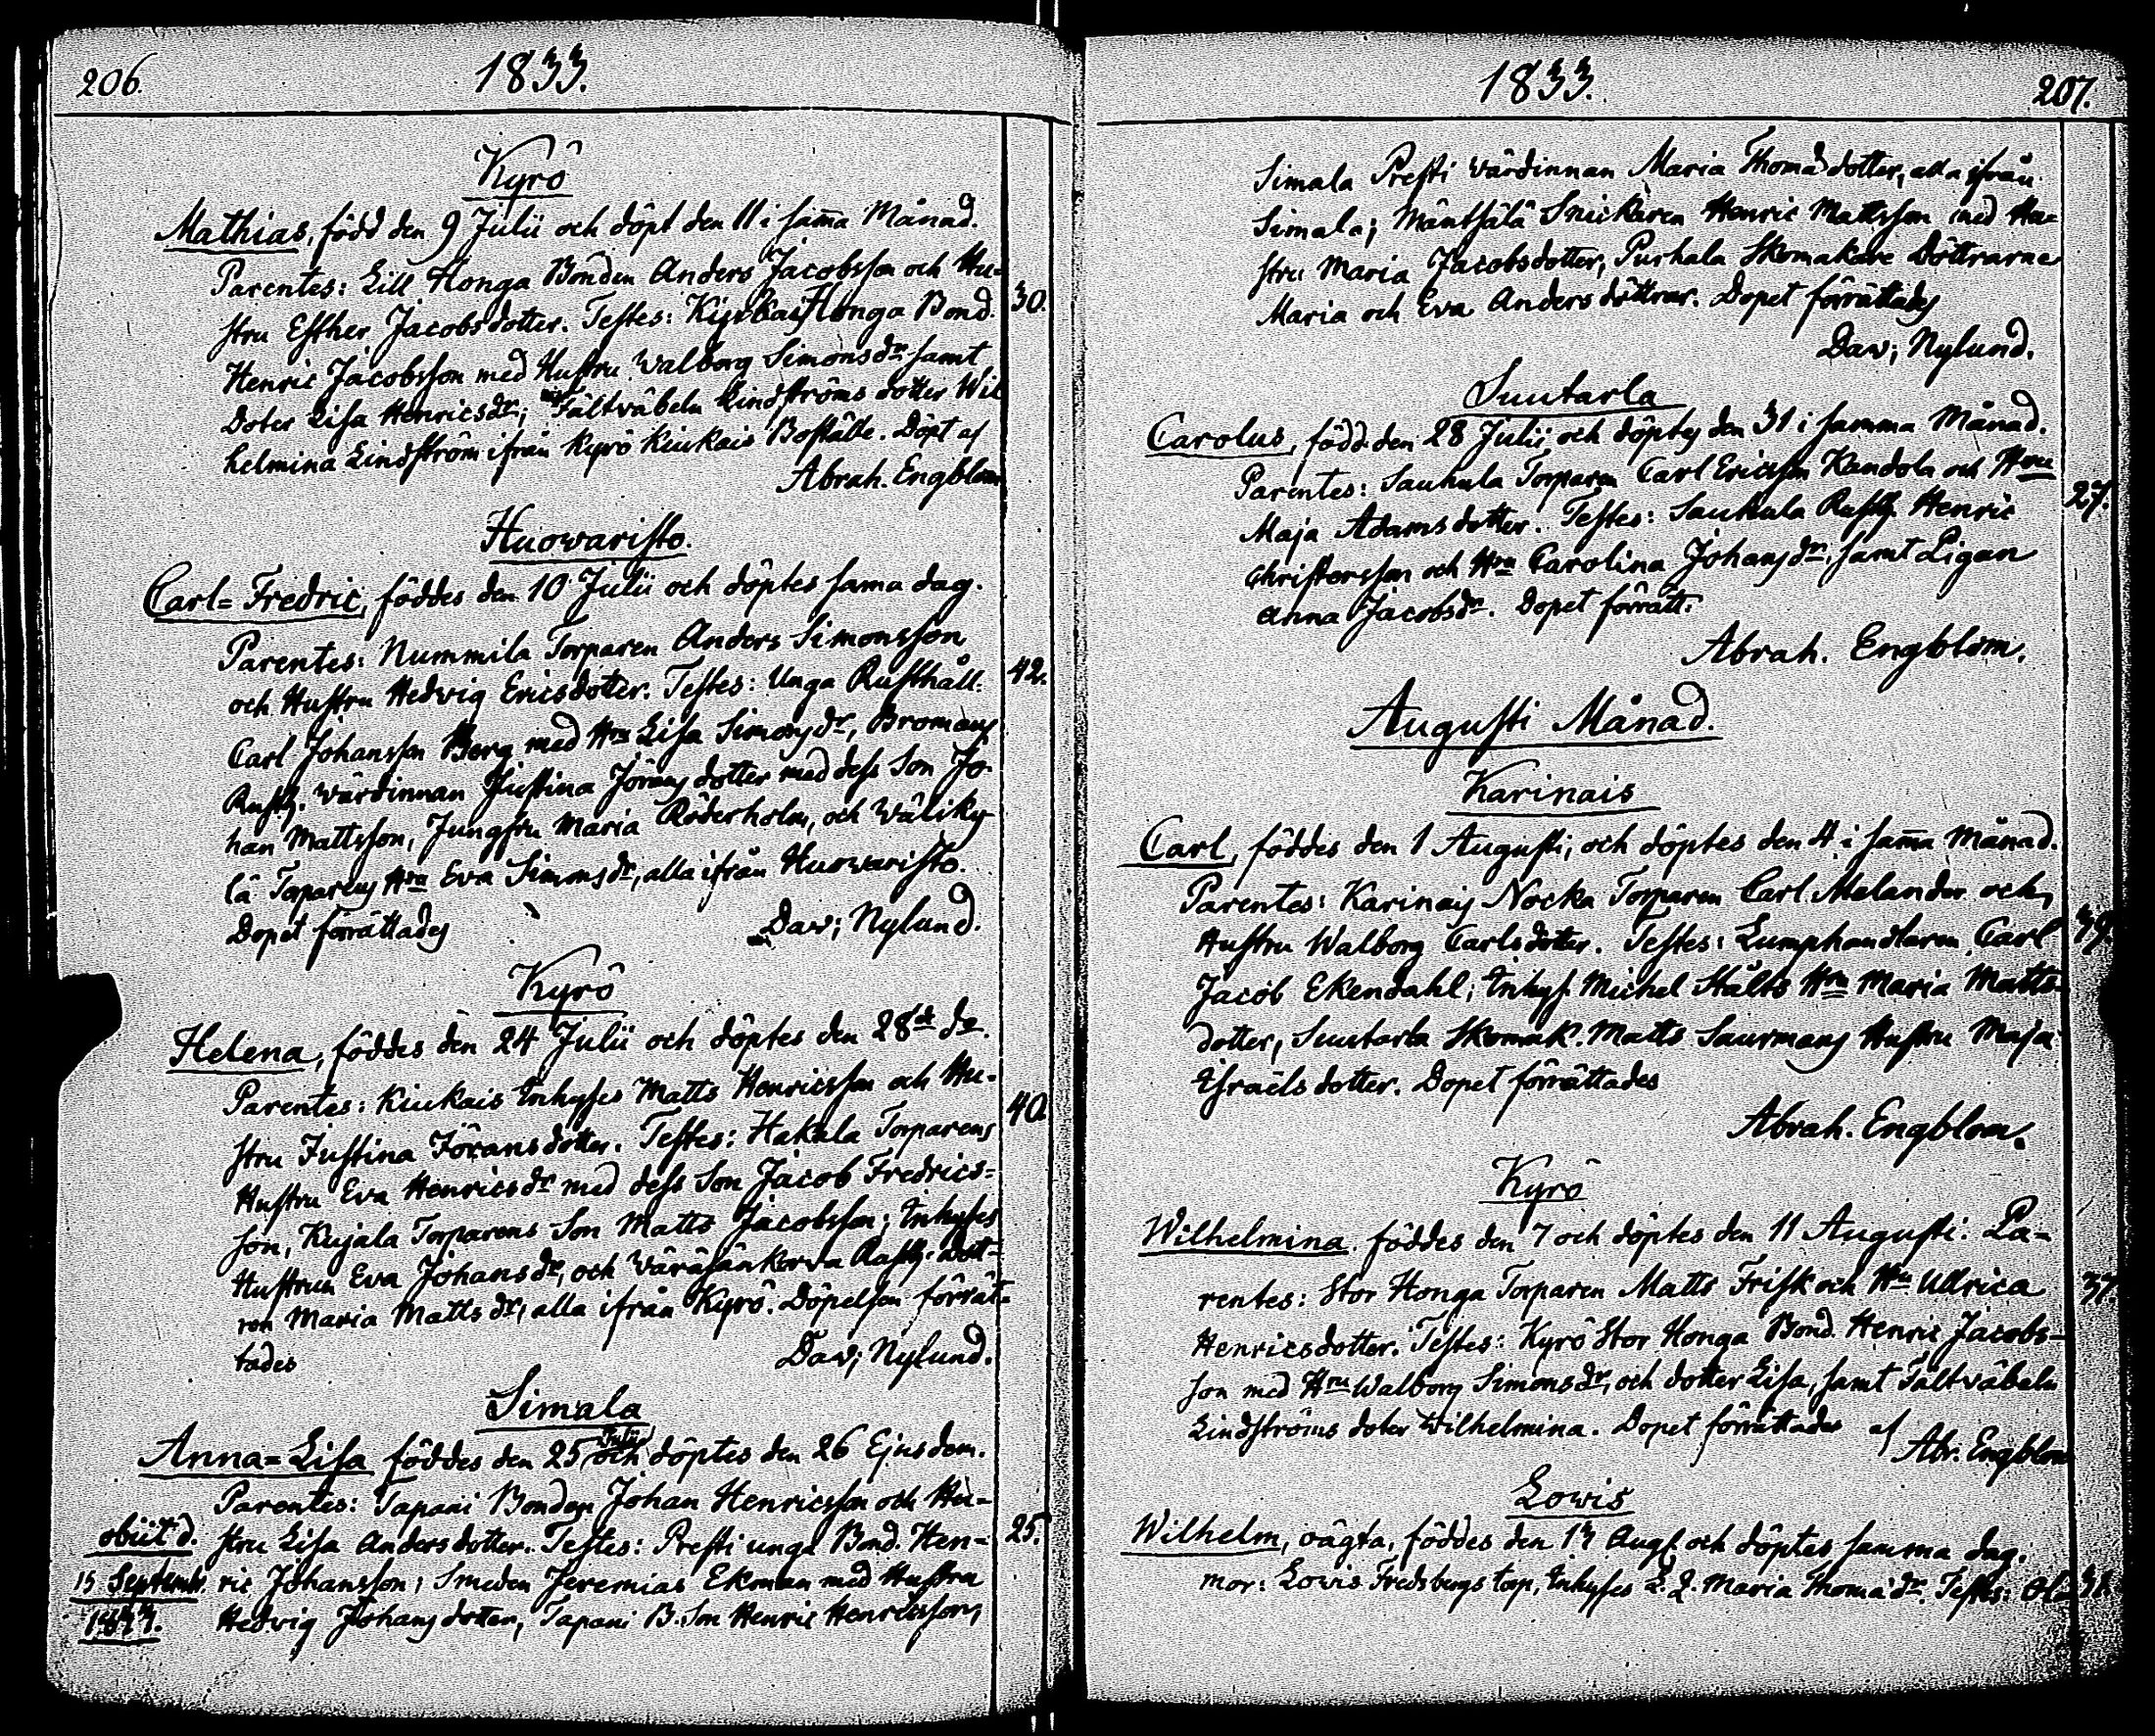 206.
1833.
Kyrö
Mathias, född den 9 Julii och döpt den 11 i sam̄a Månad.
Parentes: Lill Honga Bonden Anders Jacobsson och Hu-
stru Esther Jacobsdotter. Testes: Honga Bond. 30.
Henric Jacobsson med Hustru Walborg Simonsdr samt
Doter Lisa Henricsdr; Fältväbeln Lindströms dotter Wil
helmina Lindström ifrån Kyrö Kiukais Boställe. Döpt af
Abrah. Engblom
Huowaristo.
Carl=Fredric, föddes den 10 Julii och döptes sama dag.
Parentes: Nummila Torparen Anders Simonsson
och Hustru Hedvig Ericsdotter. Testes: Unga Rusthåll. 42.
Carl Johansson Berg med Hru Lisa Simonsdr, Bromans
Rusth. wärdinnan Justina Jöransdotter med dess Son Jo
han Mattsson, Jungfru Maria Röderholm, och Wäliky
lä Torparens Hru Eva Simonsdr, alla ifrån Huowaristo.
Dopet förrättades Dav; Nylund.
Kyrö
Helena, föddes den 24 Julii och döptes den 28de do.
Parentes: Kiukais Inhyses Matts Henricsson och Hu-
stru Justina Jöransdotter. Testes: Hakala Torparens 40.
Hustru Eva Henricsdr med dess Son Jacob Fredrics=
son, Kujala Torparens Son Matts Jacobsson; Inhyses
Hustrun Eva Johansdr, och Wäräjänkorva Rusth. dott-
ren Maria Mattsdr, alla ifrån Kyrö. Döpelsen förrät-
tades Dav; Nylund.
Simala
Anna=Lisa föddes den 25 Julii och döptes den 26 Ejusdem.
Parentes: Tapani Bonden Johan Henricsson och Hu-
obiit d. stru Lisa Andersdotter. Testes: Presti unga Bond. Hen- 25.
15 Septemb. ric Johansson; Smeden Jeremias Ekman med Hustru
1833. Hedvig Johansdotter, Tapani B. Son Henric Henricsson,
1833.
207.
Simala Presti wärdinnan Maria Thomasdotter, alla ifrån
Simala; Mäntsälä Snickaren Henric Mattsson med Hu-
stru Maria Jacobsdotter, Purhala Skomakare Döttrarne
Maria och Eva Andersdöttrar. Dopet förrättades
Dav; Nylund.
Suutarla
Carolus, född den 28 Julii och döptes den 31 i samma Månad.
Parentes: Sauhula Torparen Carl Ericsson Kandola och Hru
Maja Adamsdotter. Testes: Sauhula Rusth. Henric 27.
Christersson och Hru Carolina Johansdr, samt Pigan
Anna Jacobsdr. Dopet förrätt.
Abrah. Engblom.
Augusti Månad.
Karinais
Carl, föddes den 1 Augusti, och döptes den 4 i sam̄a Månad.
Parentes: Karinais Nocka Torparen Carl Melander och
Hustru Walborg Carlsdotter. Testes: Lumphandlaren Carl 39.
Jacob Ekendahl; Inhys Michel Stålts Hru Maria Matts-
dotter, Suutarla Skomak. Matts Saurmans Hustru Maja
Israëlsdotter. Dopet förrättades
Abrah. Engblom.
Kyrö
Wilhelmina föddes den 7 och döptes den 11 Augusti: Pa-
rentes: Stor Honga Torparen Matts Frisk och Hru Ullrica 37.
Henricsdotter. Testes: Kyrö Stor Honga Bond. Henric Jacobs-
son med Hru Walborg Simonsdr, och dotter Lisa, samt Fältväbeln
Lindströms doter Wilhelmina. Dopet förrättades af
Abr. Engblom
Lowis
Wilhelm, oägta, föddes den 13 Augt och döptes samma dag.
mor: Lowis Fredsbergs torp, Inhyses Maria Thomadr. Testes: